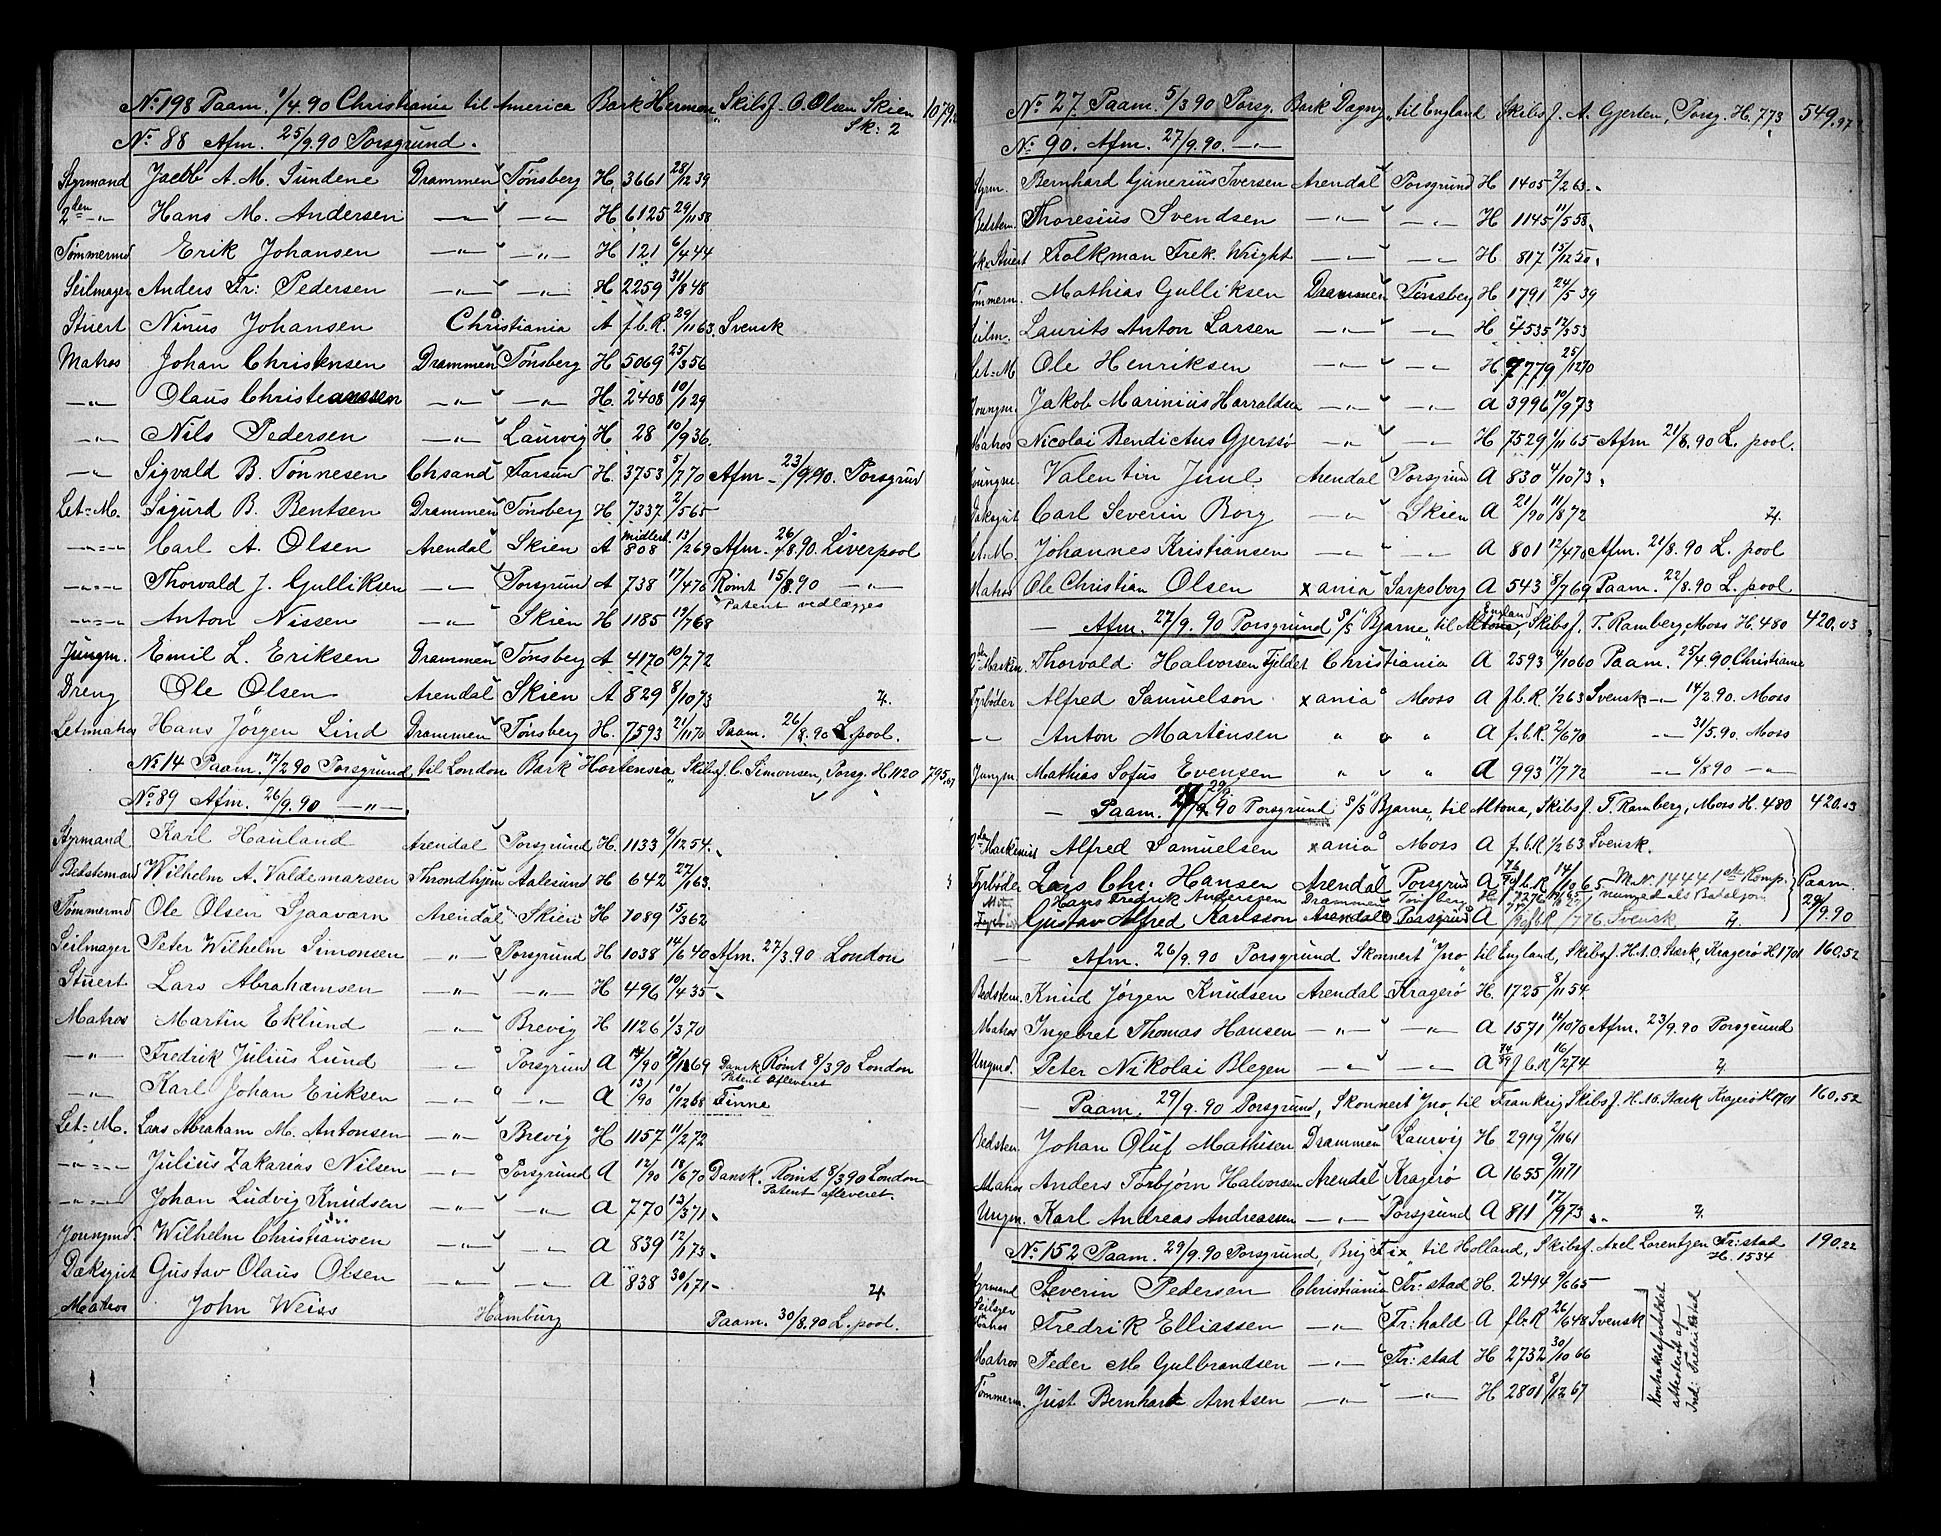 No 198 Paam. 1/4.90 Christiania til America Bark Herman, Skibsf. O. Olsen Skien 1079
Sk: 2
No 88 Afm. 25/9.90 Porsgrund.
Styrmand Jacob A. M. Sundene Drammen Tønsberg H. 3661 28/12 39
2den -"- Hans M. Andersen -"- -"- H 6125 29/11 58
Tømmermd Erik Johansen -"- -"- H 121 6/4 44
Seilmager Anders Fr: Pedersen -"- -"- H 2259 31/8 48
Stuert Ninus Johansen Christiania A f.b.R. 29/11 63 Svensk
Matros Johan Christensen Drammen Tønsberg H 5069 25/3 56
-"- Olaus Christeanssen -"- -"- H. 2408 10/1 29
-"- Nils Pedersen -"- Laurvig H 28 10/9 36
-"- Sigvald B. Tønnesen Chsand Farsund H. 3753 5/7 70 Afm - 23/9.90. Porsgrund
Let=M. Sigurd B. Bentsen Drammen Tønsberg H. 7337 2/5 65
-"-=- Carl A. Olsen Arendal Skien A midlert. 808 13/2 69 Afm. 26/8.90. Liverpool
-"-=- Thorvald J. Gulliksen -"- Porsgrund A 738 17/4 76 Rømt 15/8.90 -"-
Patent vedlægges
-"-=- Anton Nissen -"- Skien H 1185 19/7 68
Jungm. Emil L. Eriksen Drammen Tønsberg A 4170 10/7 72
Dreng Ole Olsen Arendal Skien A 829 8/10 73
Letmatros Hans Jørgen Lind Drammen Tønsberg H. 7593 21/11 70 Paam. 26/8.90 L.pool.
No 14 Paam. 17/2 90 Porsgrund til London Bark "Hortensia", Skibsf. C. Simonsen, Porsg. H. 1120 795,67
No 89 Afm. 26/9.90 -"-
Styrmand Karl Hauland Arendal Porsgrund H. 1133 9/12 54.
Bedstemand Wilhelm A. Valdemarsen Throndhjem Aalesund H 642 27/1 63.
Tømmermd Ole Olsen Sjaavarn Arendal Skien H 1089 15/3 62
Seilmager Peter Wilhelm Simonsen -"- Porsgrund H 1038 14/6 40 Afm. 27/3.90 London
Stuert Lars Abrahamsen -"- -"- H 496 10/4 35
Matros Martin Eklund -"- Brevig H 1126 1/3 70
-"- Fredrik Julius Lund -"- Porsgrund A 14/90 17/11 69 Dansk Rømt 8/3 90 London
Patent afleveret
-"- Karl Johan Eriksen -"- -"- A 13/90 10/12 68 Finne
Let=M. Lars Abraham M. Antonsen -"- Brevig H 1157 11/2 72
-"-=- Julius Zakarias Nilsen -"- Porsgrund A 12/90 18/6 70 Dansk. Rømt 8/3 90 London
Patent afleveret.
-"-=- Johan Ludvig Knudsen -"- -"- A 770 13/3 71.
Joungmd. Wilhelm Christiansen -"- -"- A 839 12/1 73
Dæksgut Gustav Olaus Olsen -"- -"- A 838 30/1 71
Matros John Weiss Hamburg Paam. 30/8.90 L.pool.
No 27. Paam. 5/3 90 Porsg. Bark "Dagny" til England Skibsf. A. Gjerten, Porsg. H. 773 549,97
No 90. Afm. 27/9.90. -"-
Styrm. Bernhard Gunerius Iversen Arendal Porsgrund H 1405 2/2 63.
Bedstem. Thoresius Svendsen -"- -"- H 1145 11/5 58.
Kok & Stuert Folkman Frek. Wright -"- -"- H. 817 15/12 50.
Tømmerm. Mathias Gulliksen Drammen Tønsberg H 1791 24/5 39
Seilm. Laurits Anton Larsen -"- -"- H 4535 17/3 53
Let=M Ole Henriksen -"- -"- H. 7779 25/12 70
Joungm. Jakob Marinius Harraldsen -"- -"- A 3996 10/9 73
Matros Nicolai Bendictus Gjerssø -"- -"- H 7529 1/11 65 Afm 21/8.90 L. pool.
Joungm. Valentin Juul Arendal Porsgrund A 830 4/10 73.
Dæksgut Carl Severin Borg -"- Skien A 21/90 11/8 72
Let.M. Johannes Kristiansen -"- -"- A 801 12/4 70 Afm. 21/8.90 L. pool
Matros Ole Christian Olsen xania Sarpsborg A 543 8/7 69 Paam. 22/8.90 L. pool
- Afm. 27/9.90 Porsgrund S/S "Bjarne" til Altona England, Skibsf. T. Ramberg, Moss H. 480 420,03
2den Maskin. Thorvald Halvorsen Fjeldet Christiania A 2593 4/10 60 Paam. 25/4.90 Christiania
Fyrbøder Alfred Samuelson xania Moss A f.b.R. 1/2 63 Svensk -"- 14/2.90 Moss
-"- Anton Martinsen " " A f.b.R. 2/6 70 -"- 31/5.90. Moss
Jungm. Mathias Sofus Evensen " " " A 993 17/7 72 -"- 6/8 90 -"-
- Paam. 29/9.90 Porsgrund S/S "Bjarne" til Altona, Skibsf. T. Ramberg, Moss H. 480 420,03
2den Maskinist Alfred Samuelsen xania Moss A f.b.R. 1/2 63 Svensk.
Fyrbøder Lars Chr. Hansen Arendal Porsgrund A f.b.R 14/10 65 M.N. 1444 1ste Komp.
Hans Fredrik Andersen Drammen Tønsberg nummedals Bataljon Paam. 29/9.90
Gustav Alfred Karlsson Arendal Porsgrund A f.b.R 1/7 76 Svensk
- Afm. 26/9.90 Porsgrund Skonnert "Jno" til England, Skibsf. H. N. O. Stærk, Kragerø H 1701 160,52
Bedstem. Knud Jørgen Knudsen Arendal Kragerø H. 1725 8/11 54
Matros Ingebret Thomas Hansen -"- -"- A 1571 14/10 70 Afm. 23/9.90 Porsgrund
Ungmd. Peter Nikolai Blegen -"- -"- A 84/89 f.b.R 16/2 74
- Paam. 29/9.90 Porsgrund, Skonnert "Jno" til Frankrig Skibsf. H. N. Stærk Kragerø H 1701 160,52
Bedstem Johan Oluf Mathisen Drammen Laurvig H 2919 2/11 61
Matros Anders Torbjørn Halvorsen Arendal Kragerø A 1655 9/11 71
Ungm. Karl Andreas Andreassen -"- Porsgrund A 811 17/9 73
No 152 Paam. 29/9.90 Porsgrund, Brig "Fix" til Holland, Skibsf. Axel Lorentzen Fr:stad H. 1534 190,22
Styrmand Severin Pedersen Christiania Fr:stad H. 2494 9/6 65
Fredrik Elliassen -"- Fr:hald A f.b.R 26/6 48 Svensk
Matros Peder M Gulbrandsen -"- Fr:stad H 2732 30/10 66
Tømmerm. Just Bernhard Arntsen -"- -"- H 2801 8/12 67
Kontraktsforholdet
attesteret af
Ind: Fredrikstad